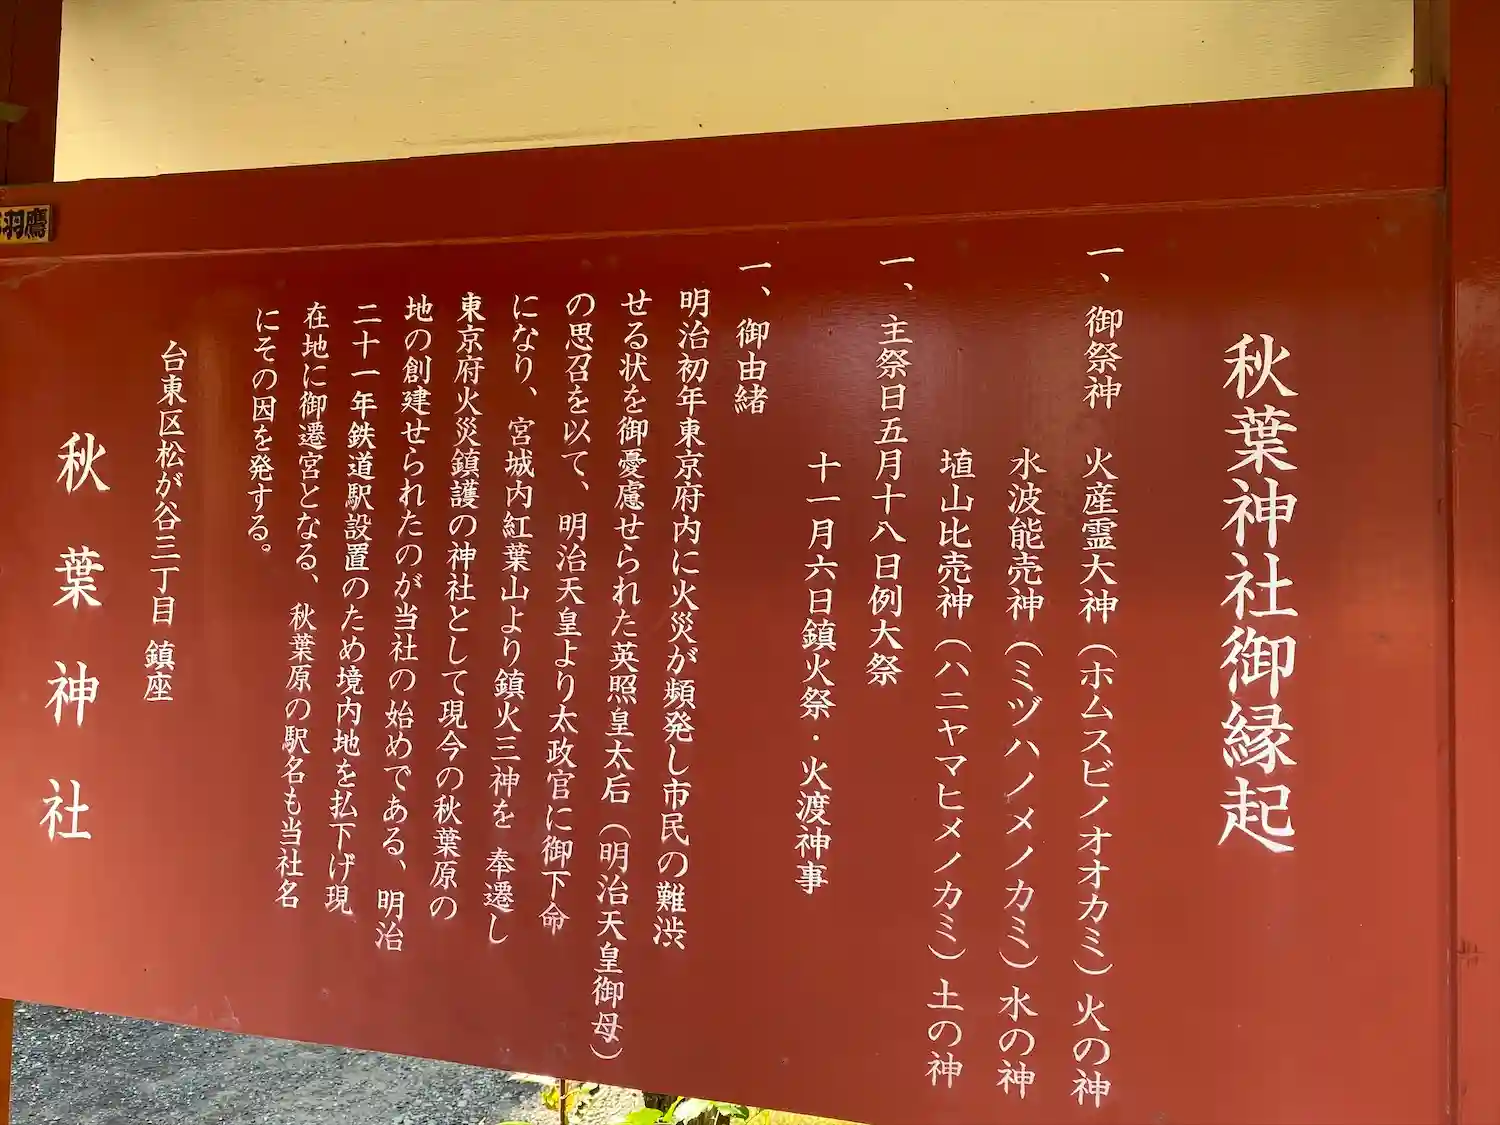 秋葉神社御縁起
一、御祭神 火産霊大神（ホムスビノオオカミ）火の神
水波能売神（ミヅハノメノカミ）水の神
埴山比売神（ハニヤマヒメノカミ）土の神
一、主祭日五月十八日例大祭
十一月六日鎮火祭・火渡神事
一、御由緒
明治初年東京府内に火災が頻発し市民の難渋
せる状を御憂慮せられた英照皇太后（明治天皇御母）
の思召を以て、明治天皇より太政官に御下命
になり、宮城内紅葉山より鎮火三神を奉遷し
東京府火災鎮護の神社として現今の秋葉原の
地の創建せられたのが当社の始めである、明治
二十一年鉄道駅設置のため境内地を払下げ現
在地に御遷宮となる、秋葉原の駅名も当社名
にその因を発する。
台東区松が谷三丁目 鎮座
秋葉神社
羽鷹